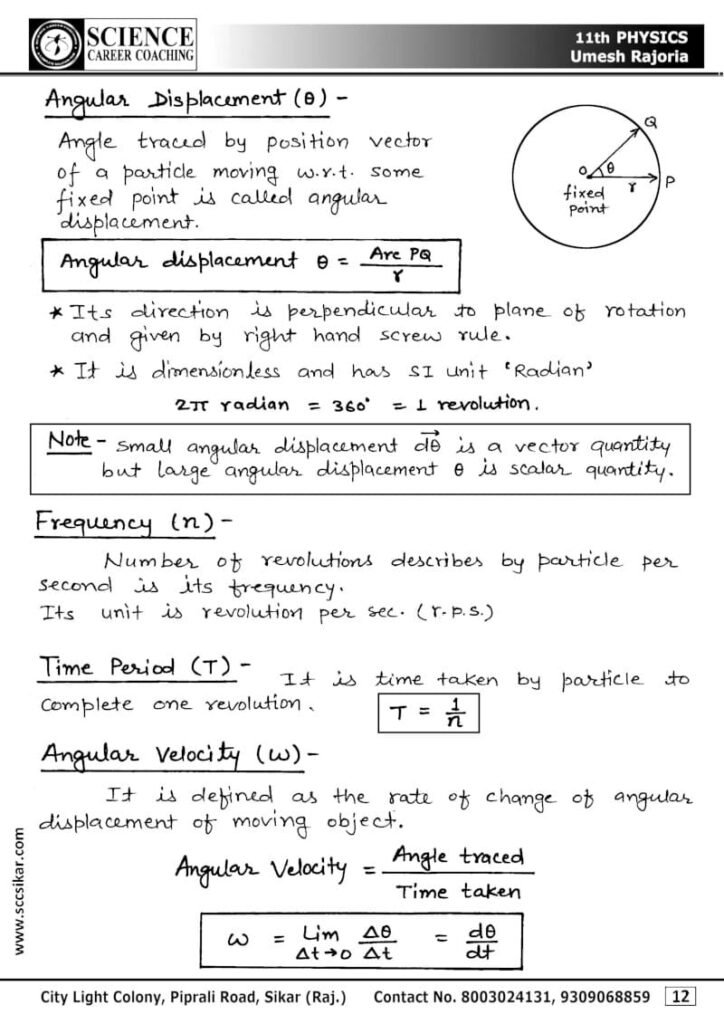 SCIENCE
CAREER COACHING
11th PHYSICS
Umesh Rajoria
Angular Displacement (θ) -
Angle traced by position vector
of a particle moving w.r.t. some
fixed point is called angular
displacement.
Q
O θ
r P
fixed
point
Angular displacement θ = Arc PQ / r
* Its direction is perpendicular to plane of rotation
and given by right hand screw rule.
* It is dimensionless and has SI unit 'Radian'
2π radian = 360° = 1 revolution.
Note - Small angular displacement d⃗θ is a vector quantity
but large angular displacement θ is scalar quantity.
Frequency (n) -
Number of revolutions describes by particle per
second is its frequency.
Its unit is revolution per sec. (r.p.s.)
Time Period (T) - It is time taken by particle to
complete one revolution.
T = 1/n
Angular Velocity (ω) -
It is defined as the rate of change of angular
displacement of moving object.
Angular Velocity = Angle traced / Time taken
ω = Lim Δt→0 Δθ/Δt = dθ/dt
www.sccsikar.com
City Light Colony, Piprali Road, Sikar (Raj.) Contact No. 8003024131, 9309068859 12